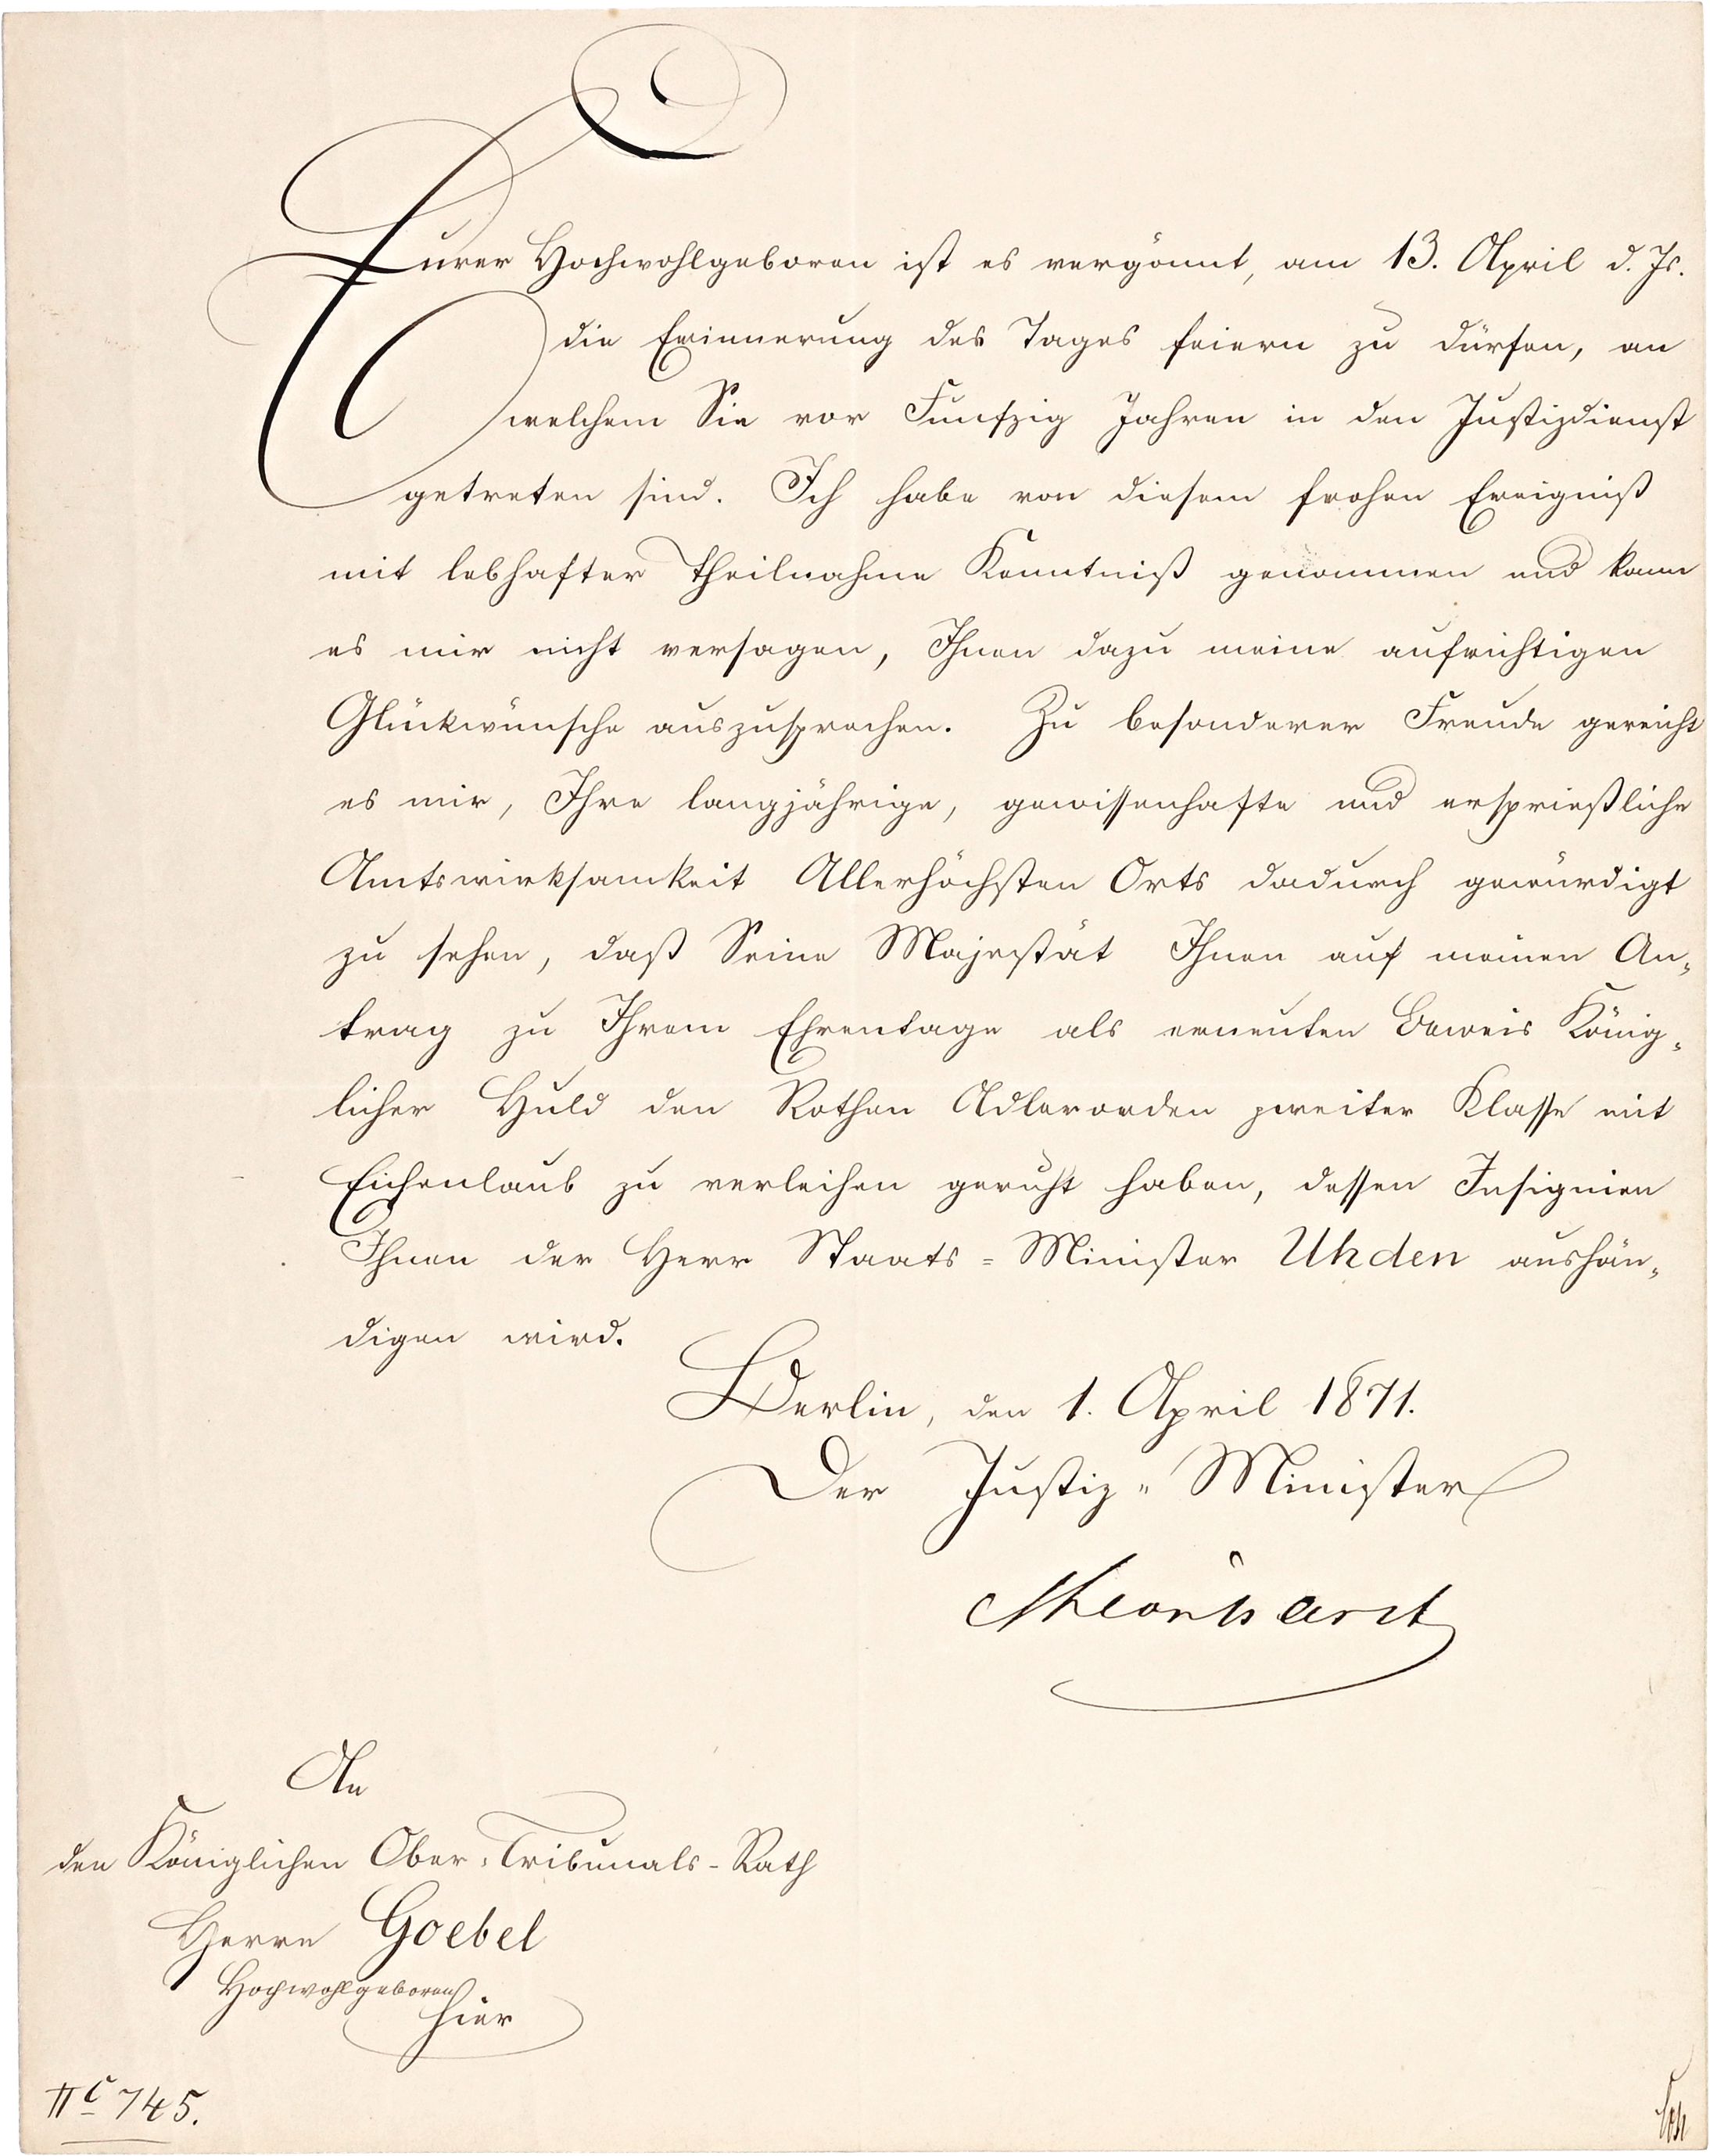 Eurer Hochwohlgeboren ist es vergönnt, am 13. April d. Js.
die Erinnerung des Tages feiern zu dürfen, an
welchem Sie vor Funfzig Jahren in den Justizdienst
getreten sind. Ich habe von diesem frohen Ereigniß
mit lebhafter Theilnahme Kenntniß genommen und kann
es mir nicht versagen, Ihnen dazu meine aufrichtigen
Glückwünsche auszusprechen. Zu besonderer Freude gereicht
es mir, Ihre langjährige, gewissenhafte und ersprießliche
Amtswirksamkeit Allerhöchsten Orts dadurch gewürdigt
zu sehen, daß Seine Majestät Ihnen auf meinen An-
trag zu Ihrem Ehrentage als erneuten Beweis König-
licher Huld den Rothen Adlerorden zweiter Klasse mit
Eichenlaub zu verleihen geruht haben, dessen Insignien
Ihnen der Herr Staats-Minister Uhden aushän-
digen wird.
Berlin, den 1. April 1871.
Der Justiz-Minister
Leonhardt
An
den Königlichen Ober-Tribunals-Rath
Herrn Goebel
Hochwohlgeboren
hier
II c 745.